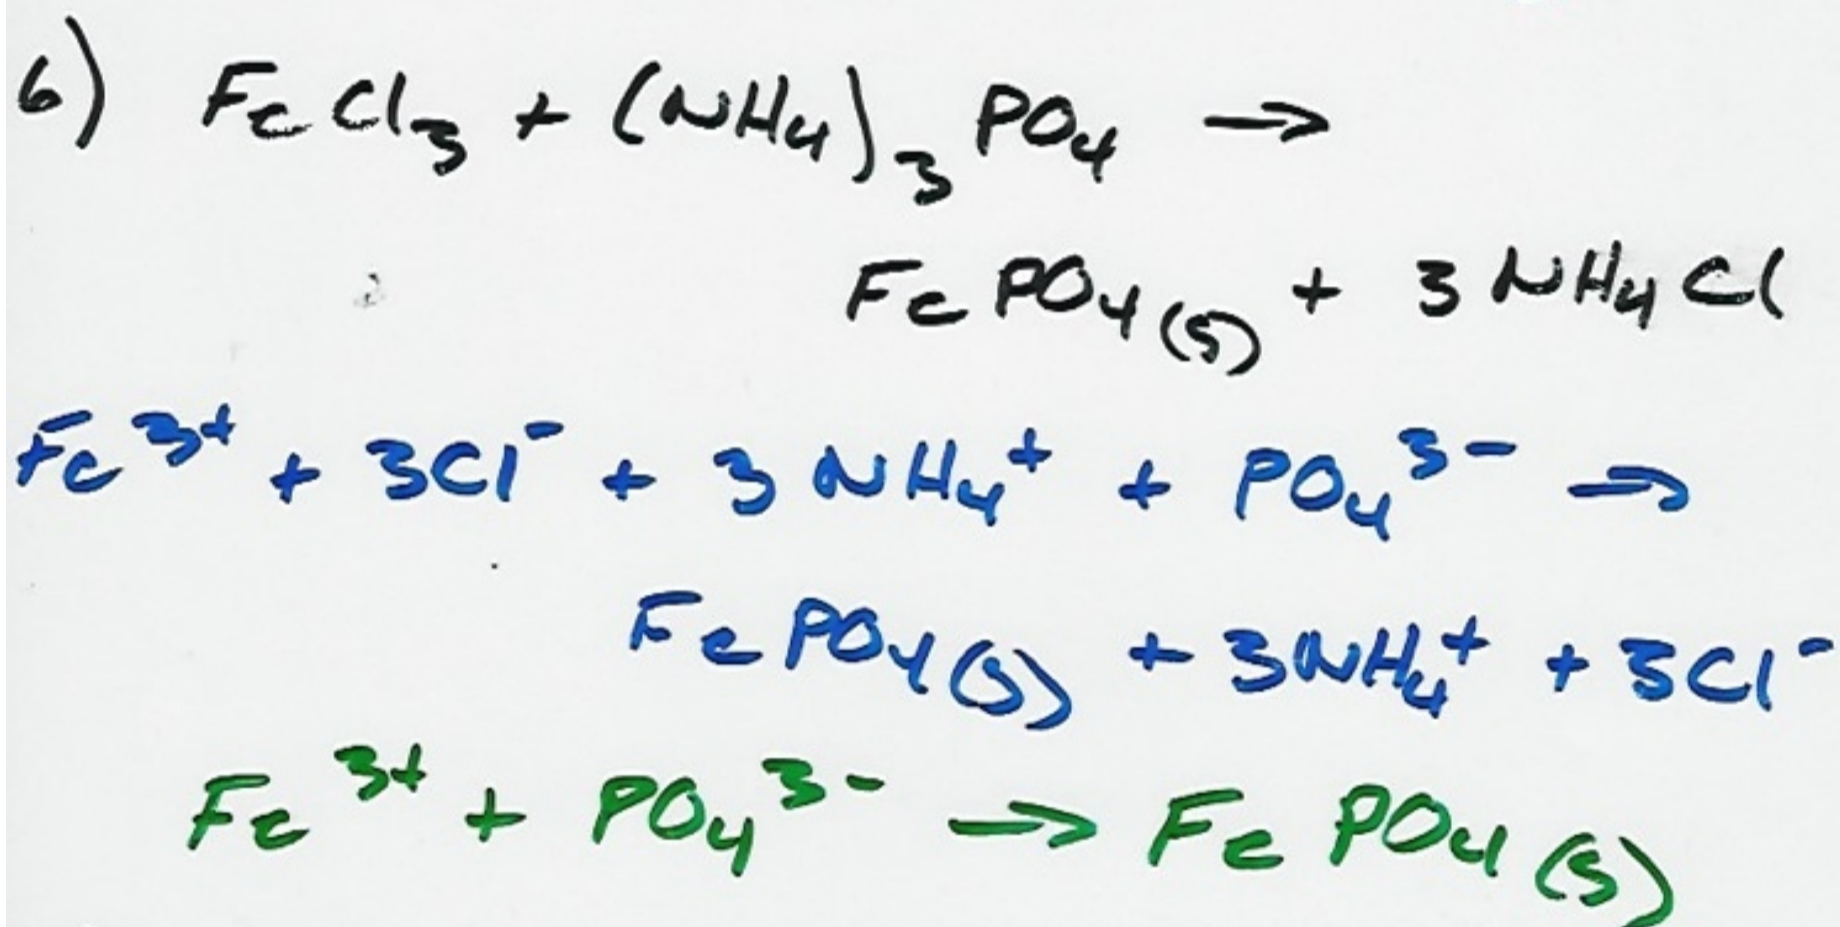 6) FeCl₃ + (NH₄)₃PO₄ →
FePO₄(s) + 3 NH₄Cl
Fe³⁺ + 3Cl⁻ + 3 NH₄⁺ + PO₄³⁻ →
FePO₄(s) + 3NH₄⁺ + 3Cl⁻
Fe³⁺ + PO₄³⁻ → FePO₄(s)